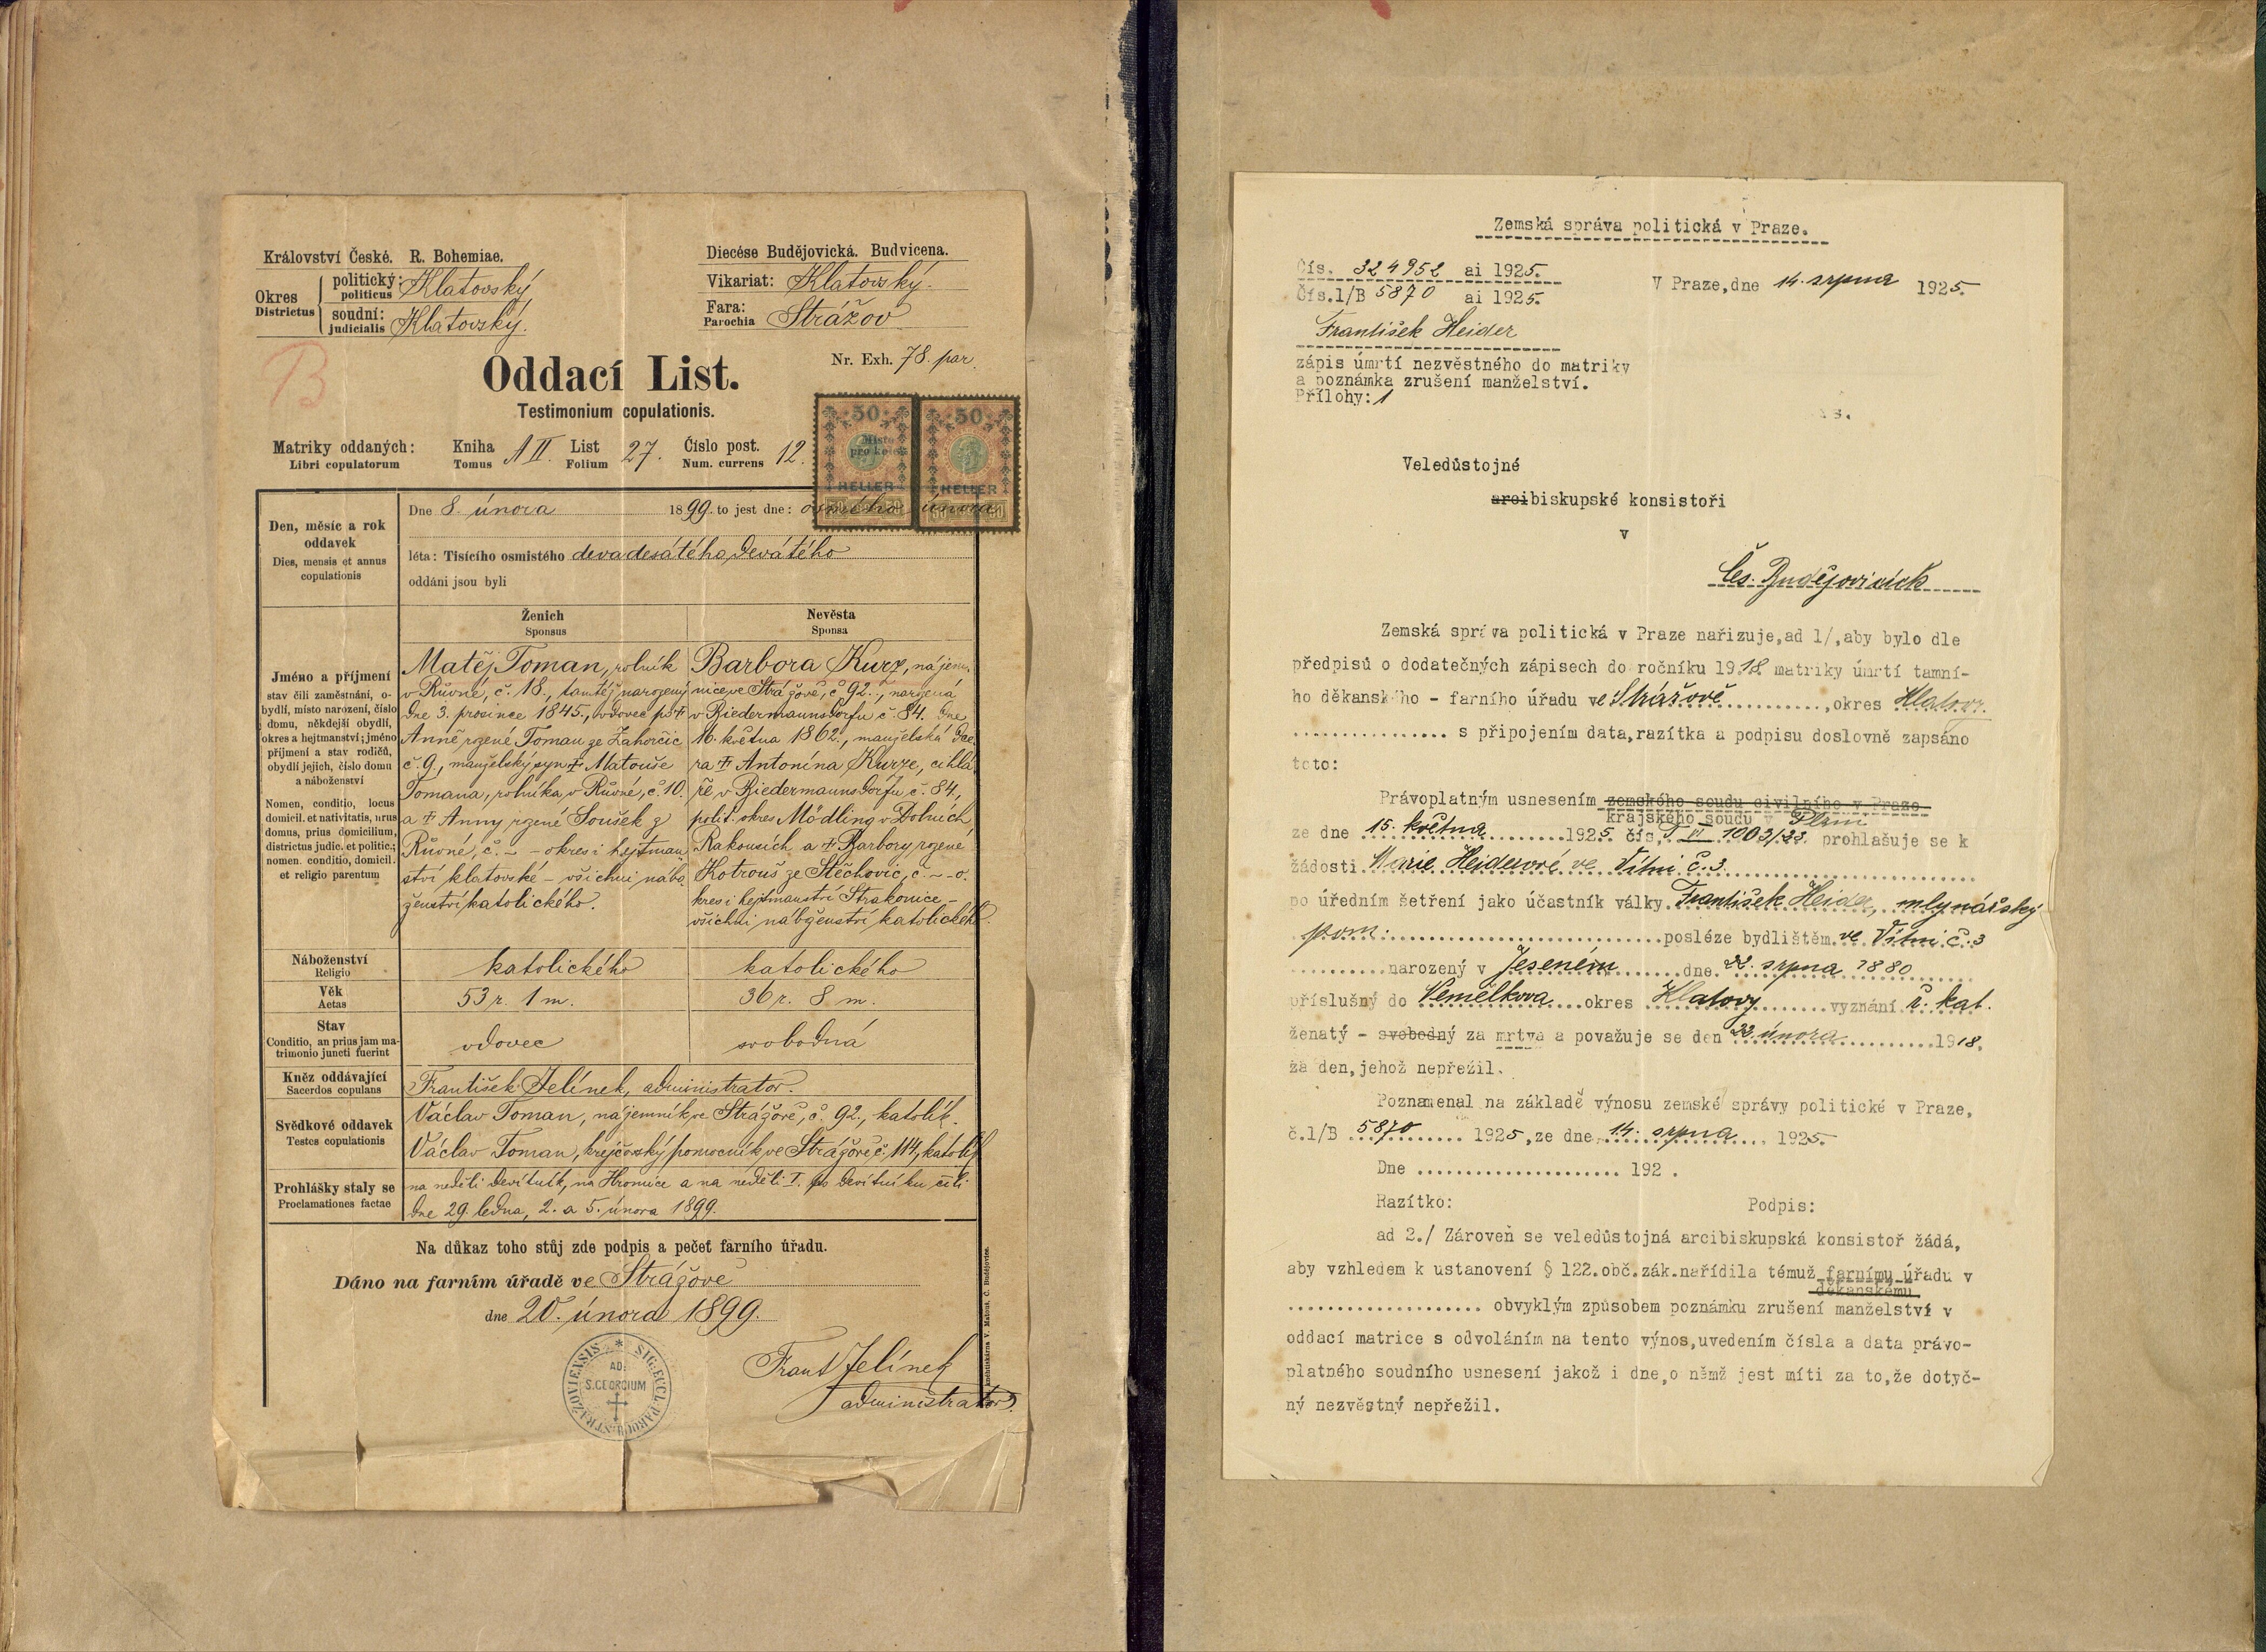 Království České. R. Bohemiae.
Okres
Districtus
politický: Klatovský
politicus
soudní: Klatovský.
judicialis
Diecése Budějovická. Budvicena.
Vikariat: Klatovský.
Fara: Strážov
Parochia
B
Nr. Exh. 78. par.
Oddací List.
Testimonium copulationis.
Matriky oddaných: Kniha A II. List 27. Číslo post. 12.
Libri copulatorum Tomus Folium Num. currens
50 50
Místo
pro kolek
HELLER HELLER
Den, měsíc a rok
oddavek
Dies, mensis et annus
copulationis
Dne 8. února 1899. to jest dne: osmého února
léta: Tisícího osmistého devadesátého devátého
oddáni jsou byli
Ženich
Sponsus
Nevěsta
Sponsa
Jméno a příjmení
stav čili zaměstnání, o-
bydlí, místo narození, číslo
domu, někdejší obydlí,
okres a hejtmanství; jméno
příjmení a stav rodičů,
obydlí jejich, číslo domu
a náboženství
Nomen, conditio, locus
domicil. et nativitatis, nrus
domus, prius domicilium,
districtus judic. et politic.;
nomen. conditio, domicil.
et religio parentum
Matěj Toman, rolník
v Růvné, č. 18., tamtéž narozený
dne 3. prosince 1845., vdovec po †
Anně rozené Toman ze Zahorčic
č. 9., manželský syn † Matouše
Tomana, rolníka v Růvné, č. 10.
a † Anny rozené Soušek z
Růvné, č. – – okres i hejtman-
ství klatovské – všichni nábo-
ženství katolického.
Barbora Kurz, nájem-
nice ve Strážově, č 92., narozená
v Biedermannsdorfu č. 84. dne
16. května 1862., manželská dce-
ra † Antonína Kurze, cihlá-
ře v Biedermannsdorfu č. 84,
polit. okres Mödling v Dolních
Rakousích a † Barbory rozené
Kotrouš ze Štěchovic, č. – – o-
kres i hejtmanství Strakonice –
všichni náboženství katolického.
Náboženství
Religio
katolického katolického
Věk
Aetas
53 r. 1 m. 36 r. 8 m.
Stav
Conditio, an prius jam ma-
trimonio juncti fuerint
vdovec svobodná
Kněz oddávající
Sacerdos copulans
František Jelínek, administrator.
Svědkové oddavek
Testes copulationis
Václav Toman, nájemník ve Strážově, č. 92., katolík.
Václav Toman, krejčovský pomocník ve Strážově č. 114, katolík
Prohlášky staly se
Proclamationes factae
na neděli Devítník, na Hromnice a na neděli I. po Devítníku čili
dne 29. ledna, 2. a 5. února 1899.
Na důkaz toho stůj zde podpis a pečeť farního úřadu.
Dáno na farním úřadě ve Strážově
dne 20. února 1899.
SIG. ECCL. PAROCH. STRAŽOVIENSIS
AD.
S. GEORGIUM
Frant Jelínek
administrator.
Knihtiskárna V. Mabous, Č. Budějovice.
Zemská správa politická v Praze.
Čís. 324952 ai 1925.
Čís.1/B 5870 ai 1925.
V Praze, dne 14. srpna 1925.
František Heider
zápis úmrtí nezvěstného do matriky
a poznámka zrušení manželství.
Přílohy: 1
Veledůstojné
arcibiskupské konsistoři
v
Čes. Budějovicích
Zemská správa politická v Praze nařizuje, ad 1/, aby bylo dle
předpisů o dodatečných zápisech do ročníku 1918. matriky úmrtí tamní-
ho děkanského - farního úřadu ve Strážově ............, okres Klatovy.
............... s připojením data, razítka a podpisu doslovně zapsáno
toto:
Právoplatným usnesením zemského soudu civilního v Praze
krajského soudu v Plzni
ze dne 15. května ......... 1925 čís. T VI 1003/23 prohlašuje se k
žádosti Marie Heiderové ve Vítni č. 3.
po úředním šetření jako účastník války František Heider, mlynářský
pom. .............................. posléze bydlištěm ve Vítni č. 3
.......... narozený v Jeseném ....... dne 22. srpna 1880
příslušný do Nemělkova .... okres Klatovy ....... vyznání ř. kat.
ženatý - svobodný za mrtva a považuje se den 23. února .......... 1918.
za den, jehož nepřežil.
Poznamenal na základě výnosu zemské správy politické v Praze,
č.1/B 5870 ....... 1925, ze dne 14. srpna .... 1925.
Dne ..................... 192 .
Razítko: Podpis:
ad 2./ Zároveň se veledůstojná arcibiskupská konsistoř žádá,
aby vzhledem k ustanovení § 122. obč. zák. nařídila témuž farnímu úřadu v
děkanskému
.................... obvyklým způsobem poznámku zrušení manželství v
oddací matrice s odvoláním na tento výnos, uvedením čísla a data právo-
platného soudního usnesení jakož i dne, o němž jest míti za to, že dotyč-
ný nezvěstný nepřežil.